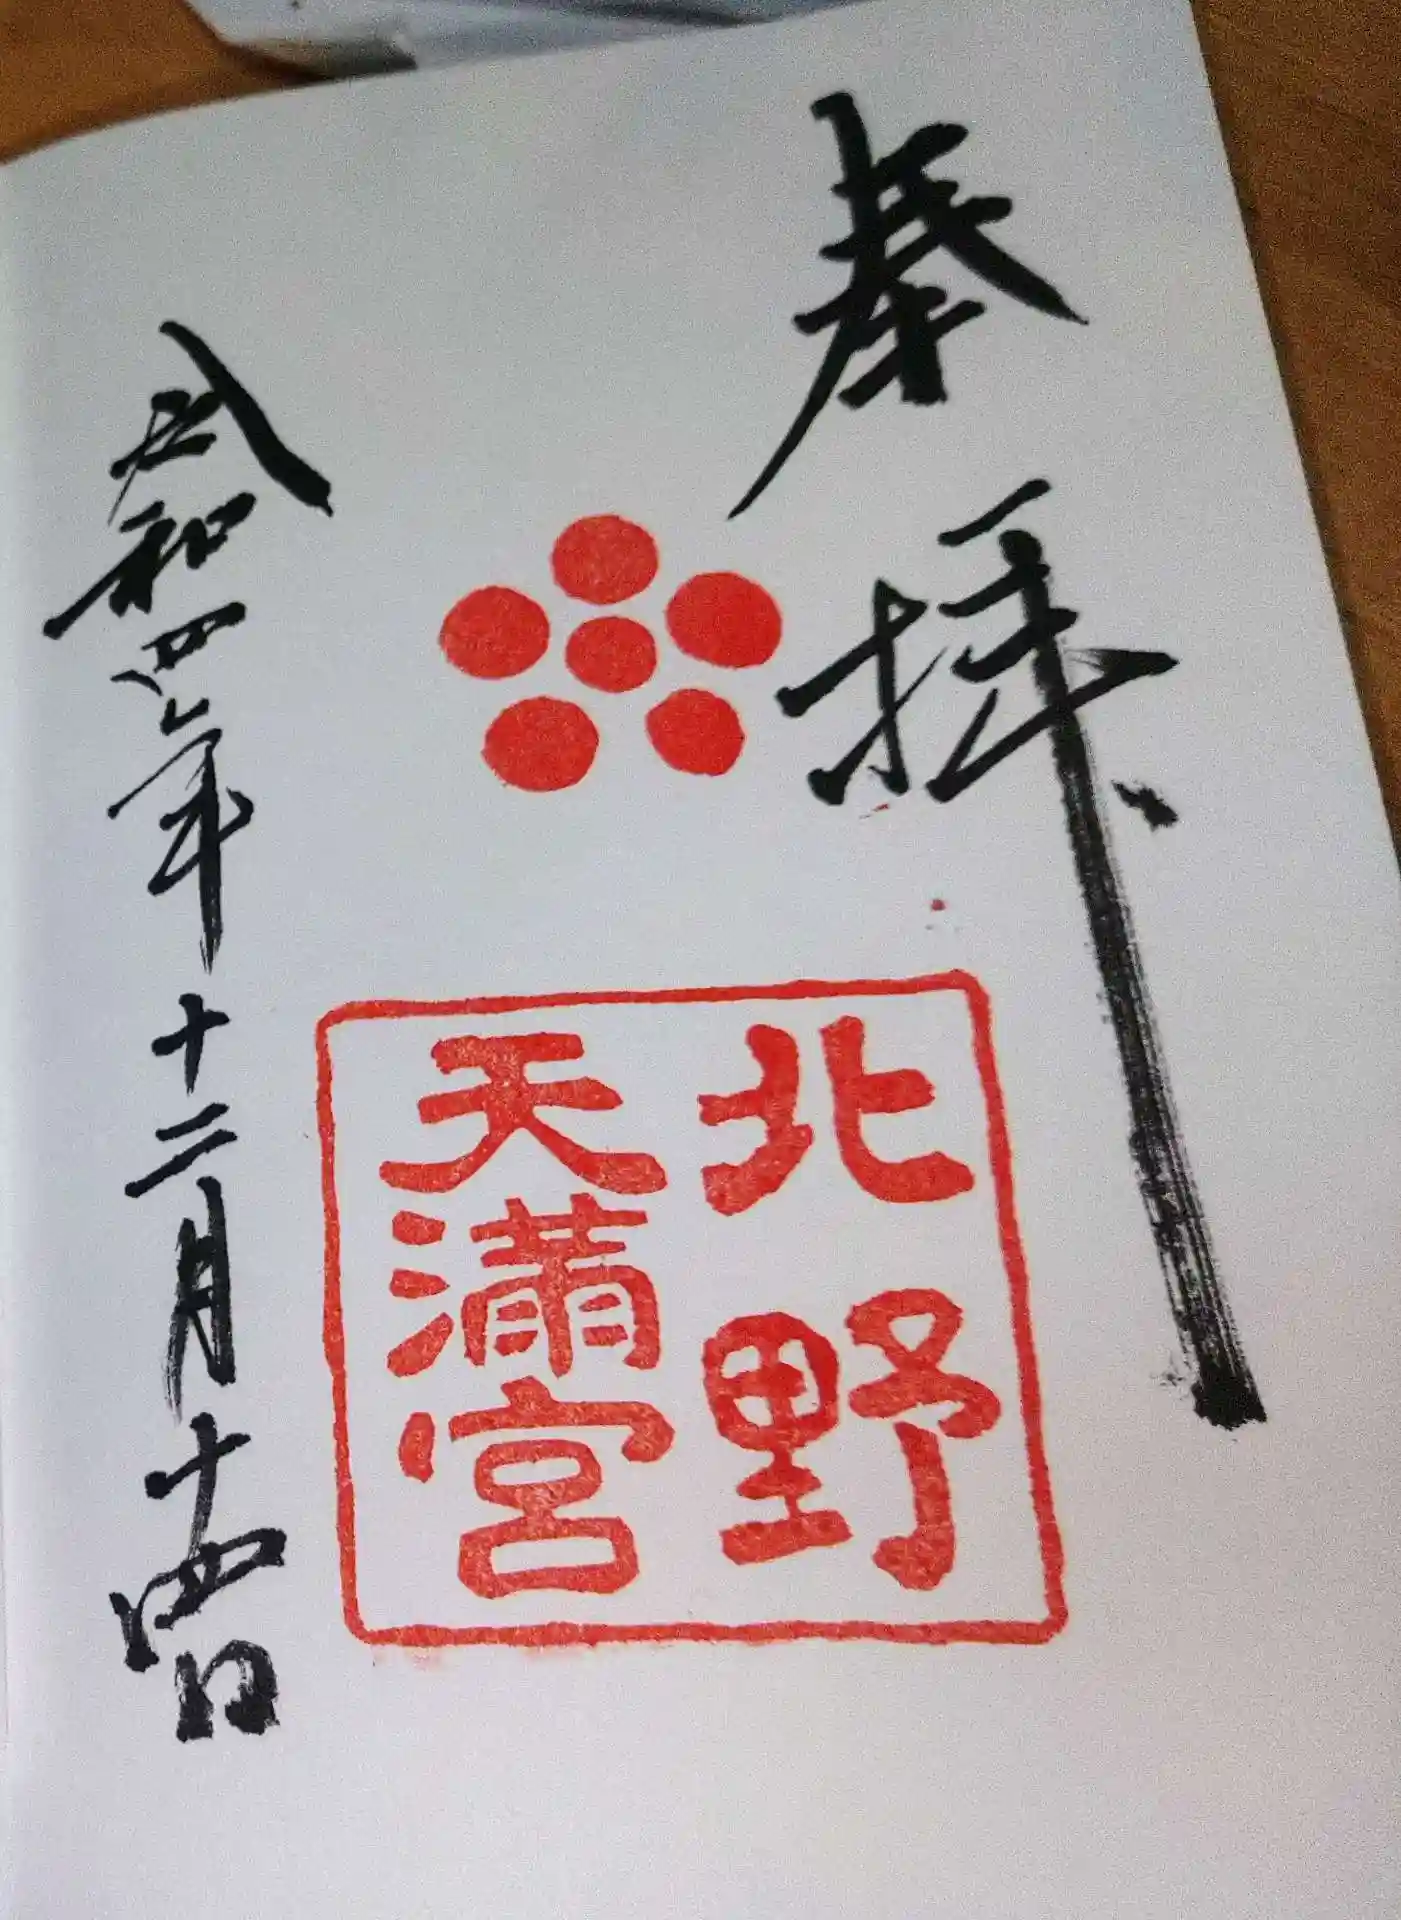 奉拝
北野
天満宮
令和四年十二月十四日